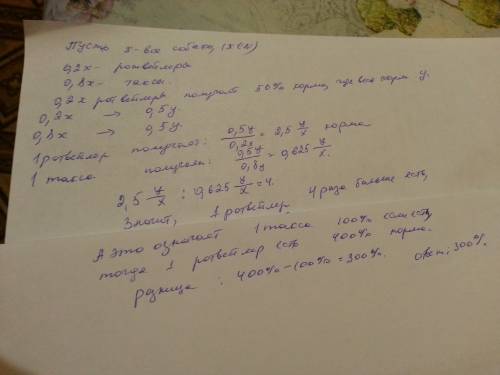 Пусть x - все собаки, (x∈N)
0,2x - ротвейлеры
0,8x - таксы.
0,2x ротвейлеры получают 50% корма, где весь корм y.
0,2x → 0,5y
0,8x → 0,5y.
1 ротвейлер получает: 0,5y/0,2x = 2,5 y/x корма
1 такса получает: 0,5y/0,8y = 0,625 y/x.
2,5 y/x : 0,625 y/x = 4.
Значит, 1 ротвейлер 4 раза больше есть,
А это означает 1 такса 100% если есть,
тогда 1 ротвейлер есть 400% корма.
разница: 400% - 100% = 300%. Ответ: 300%